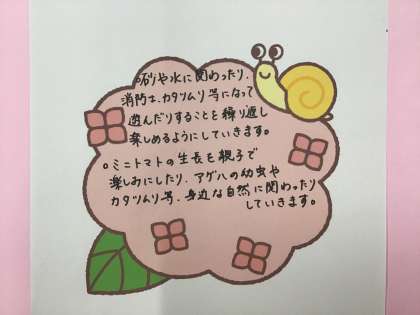 ○砂や水に関わったり、
消防士、カタツムリ等になって
遊んだりすることを繰り返し
楽しめるようにしていきます。
○ミニトマトの生長を親子で
楽しみにしたり、アゲハの幼虫や
カタツムリ等、身近な自然に関わったり
していきます。